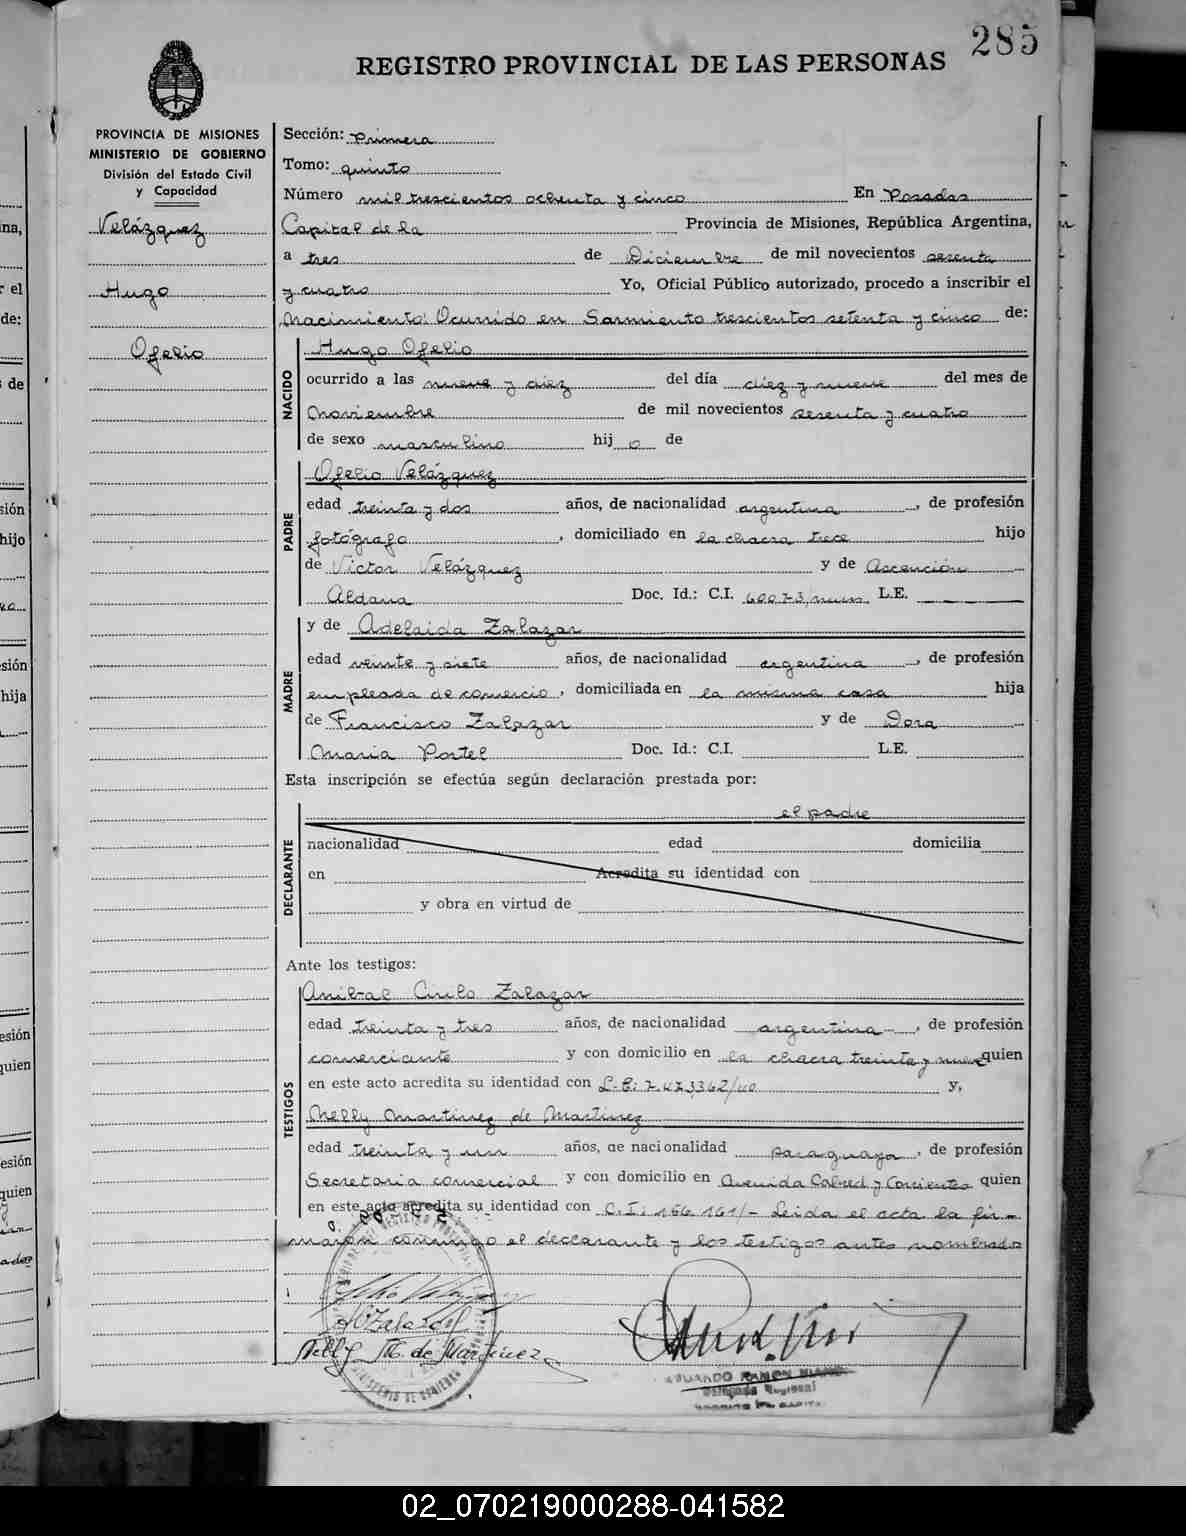 285
REGISTRO PROVINCIAL DE LAS PERSONAS
PROVINCIA DE MISIONES
MINISTERIO DE GOBIERNO
División del Estado Civil
y Capacidad
Velázquez
Hugo
Ofelio
Sección: primera
Tomo: quinto
Número mil trescientos ochenta y cinco En Posadas
Capital de la Provincia de Misiones, República Argentina,
a tres de Diciembre de mil novecientos sesenta
y cuatro Yo, Oficial Público autorizado, procedo a inscribir el
Nacimiento: Ocurrido en Sarmiento trescientos setenta y cinco de:
NACIDO
Hugo Ofelio
ocurrido a las nueve y diez del día diez y nueve del mes de
Noviembre de mil novecientos sesenta y cuatro
de sexo masculino hij o de
PADRE
Ofelio Velázquez
edad treinta y dos años, de nacionalidad argentina, de profesión
fotógrafo, domiciliado en la chacra trece hijo
de Victor Velázquez y de Ascención
Aldana Doc. Id.: C.I. 60073 L.E.
MADRE
y de Adelaida Zalazar
edad veinte y siete años, de nacionalidad argentina, de profesión
empleada de comercio, domiciliada en la misma casa hija
de Francisco Zalazar y de Dora
Maria Portel Doc. Id.: C.I. L.E.
Esta inscripción se efectúa según declaración prestada por:
DECLARANTE
el padre
nacionalidad edad domicilia
en Acredita su identidad con
y obra en virtud de
Ante los testigos:
TESTIGOS
Anibal Cirilo Zalazar
edad treinta y tres años, de nacionalidad argentina, de profesión
comerciante y con domicilio en la chacra treinta y nueve quien
en este acto acredita su identidad con L.E: 7.473362/40 y,
Nelly Martinez de Martinez
edad treinta y un años, de nacionalidad paraguaya, de profesión
Secretaria comercial y con domicilio en Avenida Cabred y Corrientes quien
en este acto acredita su identidad con C.I: 166.161/- Leida el acta la fir-
maron conmigo el declarante y los testigos antes nombrado
Zalazar
Nelly M. de Martínez
EDUARDO RAMON
Delegado Regional
02_070219000288-041582